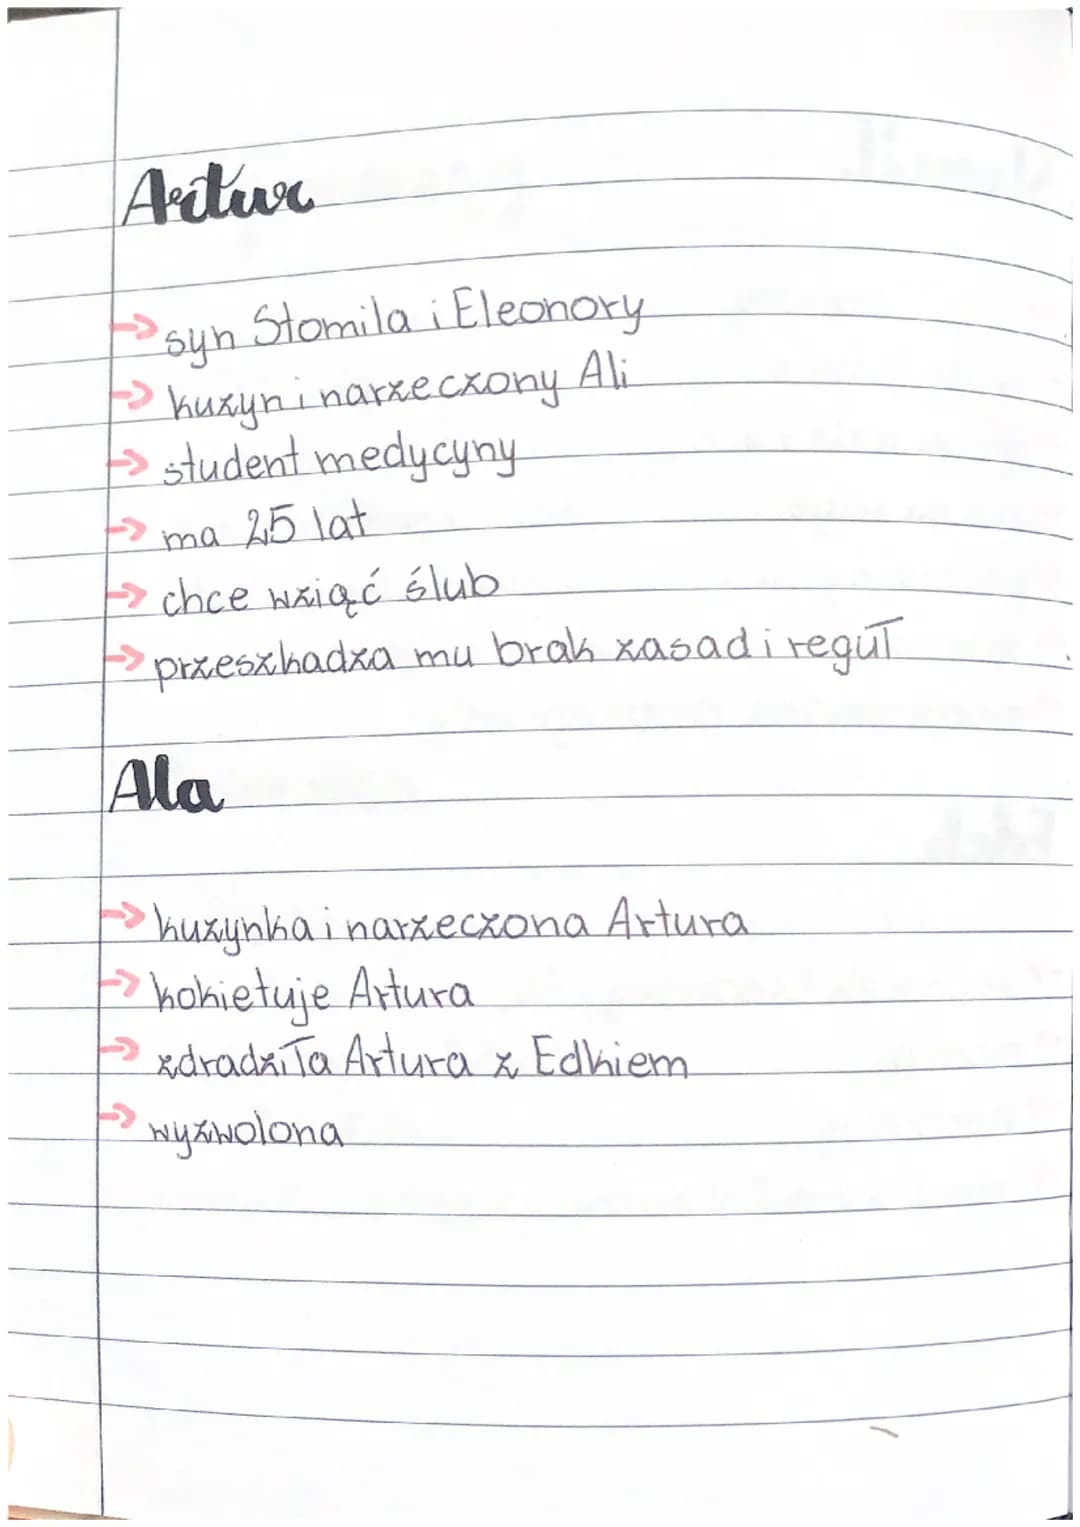 Artur
→ syn Stomila i Eleonory
→ kuzyn i narzeczony Ali
→ student medycyny
→ ma 25 lat
→ chce wziąć ślub
→ przeszkadza mu brak zasad i reguł
Ala
→ kuzynka i narzeczona Artura
→ kokietuje Artura
→ zdradziła Artura z Edkiem
→ wyzwolona